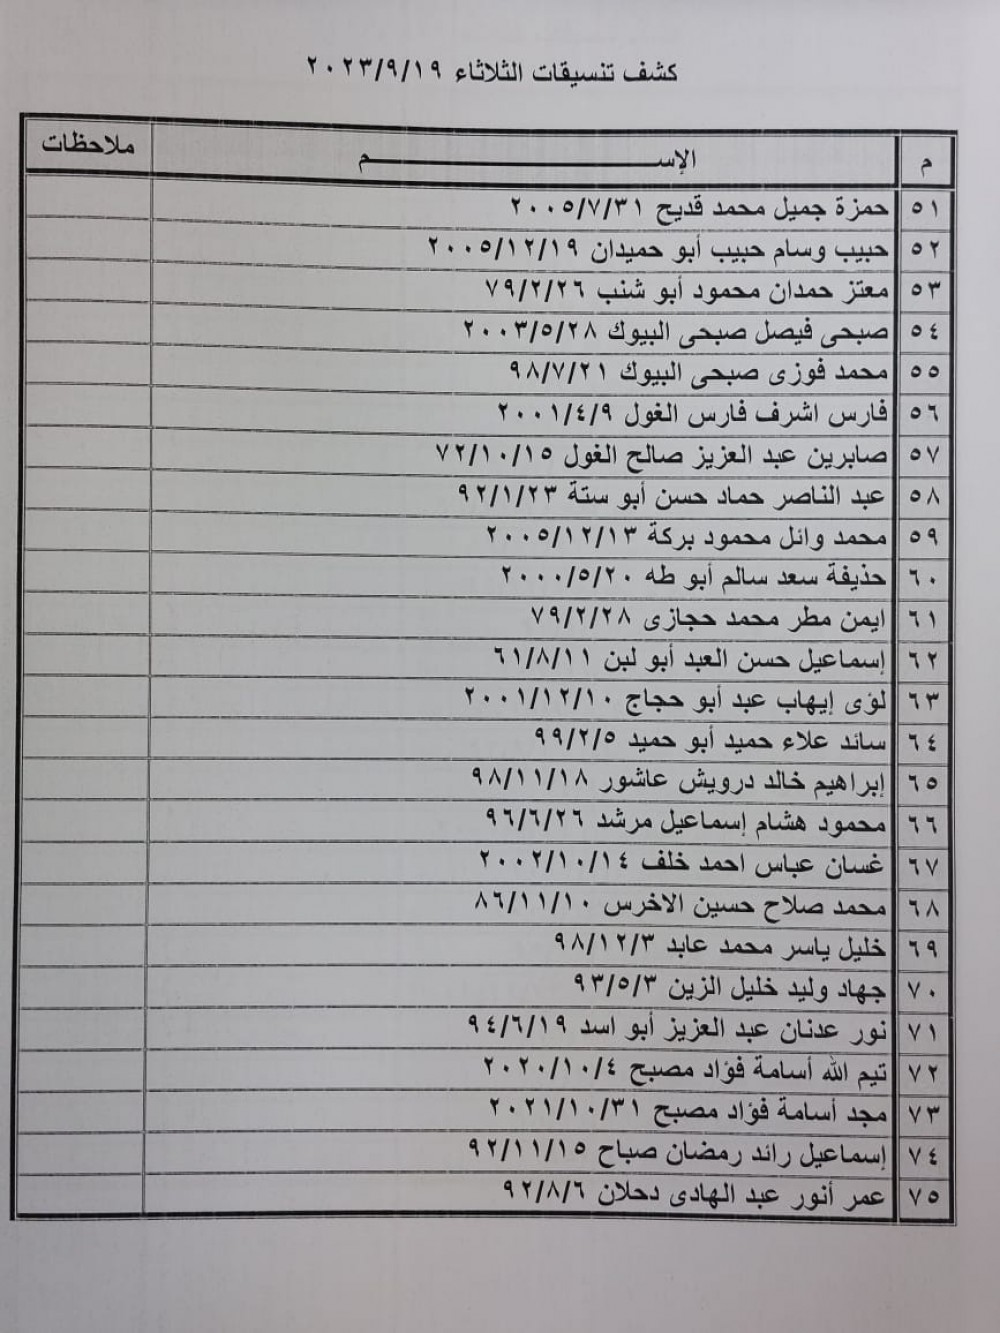 كشف تنسيقات الثلاثاء ٢٠٢٣/٩/١٩
م الإســـــم ملاحظات
٥١ حمزة جميل محمد قديح ٢٠٠٥/٧/٣١
٥٢ حبيب وسام حبيب أبو حميدان ٢٠٠٥/١٢/١٩
٥٣ معتز حمدان محمود أبو شنب ٧٩/٢/٢٦
٥٤ صبحى فيصل صبحى البيوك ٢٠٠٣/٥/٢٨
٥٥ محمد فوزى صبحى البيوك ٩٨/٧/٢١
٥٦ فارس اشرف فارس الغول ٢٠٠١/٤/٩
٥٧ صابرين عبد العزيز صالح الغول ٧٢/١٠/١٥
٥٨ عبد الناصر حماد حسن أبو ستة ٩٢/١/٢٣
٥٩ محمد وائل محمود بركة ٢٠٠٥/١٢/١٣
٦٠ حذيفة سعد سالم أبو طه ٢٠٠٠/٥/٢٠
٦١ ايمن مطر محمد حجازى ٧٩/٢/٢٨
٦٢ إسماعيل حسن العبد أبو لبن ٦١/٨/١١
٦٣ لؤى إيهاب عبد أبو حجاج ٢٠٠١/١٢/١٠
٦٤ سائد علاء حميد أبو حميد ٩٩/٢/٥
٦٥ إبراهيم خالد درويش عاشور ٩٨/١١/١٨
٦٦ محمود هشام إسماعيل مرشد ٩٦/٦/٢٦
٦٧ غسان عباس احمد خلف ٢٠٠٢/١٠/١٤
٦٨ محمد صلاح حسين الاخرس ٨٦/١١/١٠
٦٩ خليل ياسر محمد عابد ٩٨/١٢/٣
٧٠ جهاد وليد خليل الزين ٩٣/٥/٣
٧١ نور عدنان عبد العزيز أبو اسد ٩٤/٦/١٩
٧٢ تيم الله أسامة فؤاد مصبح ٢٠٢٠/١٠/٤
٧٣ مجد أسامة فؤاد مصبح ٢٠٢١/١٠/٣١
٧٤ إسماعيل رائد رمضان صباح ٩٢/١١/١٥
٧٥ عمر أنور عبد الهادى دحلان ٩٢/٨/٦